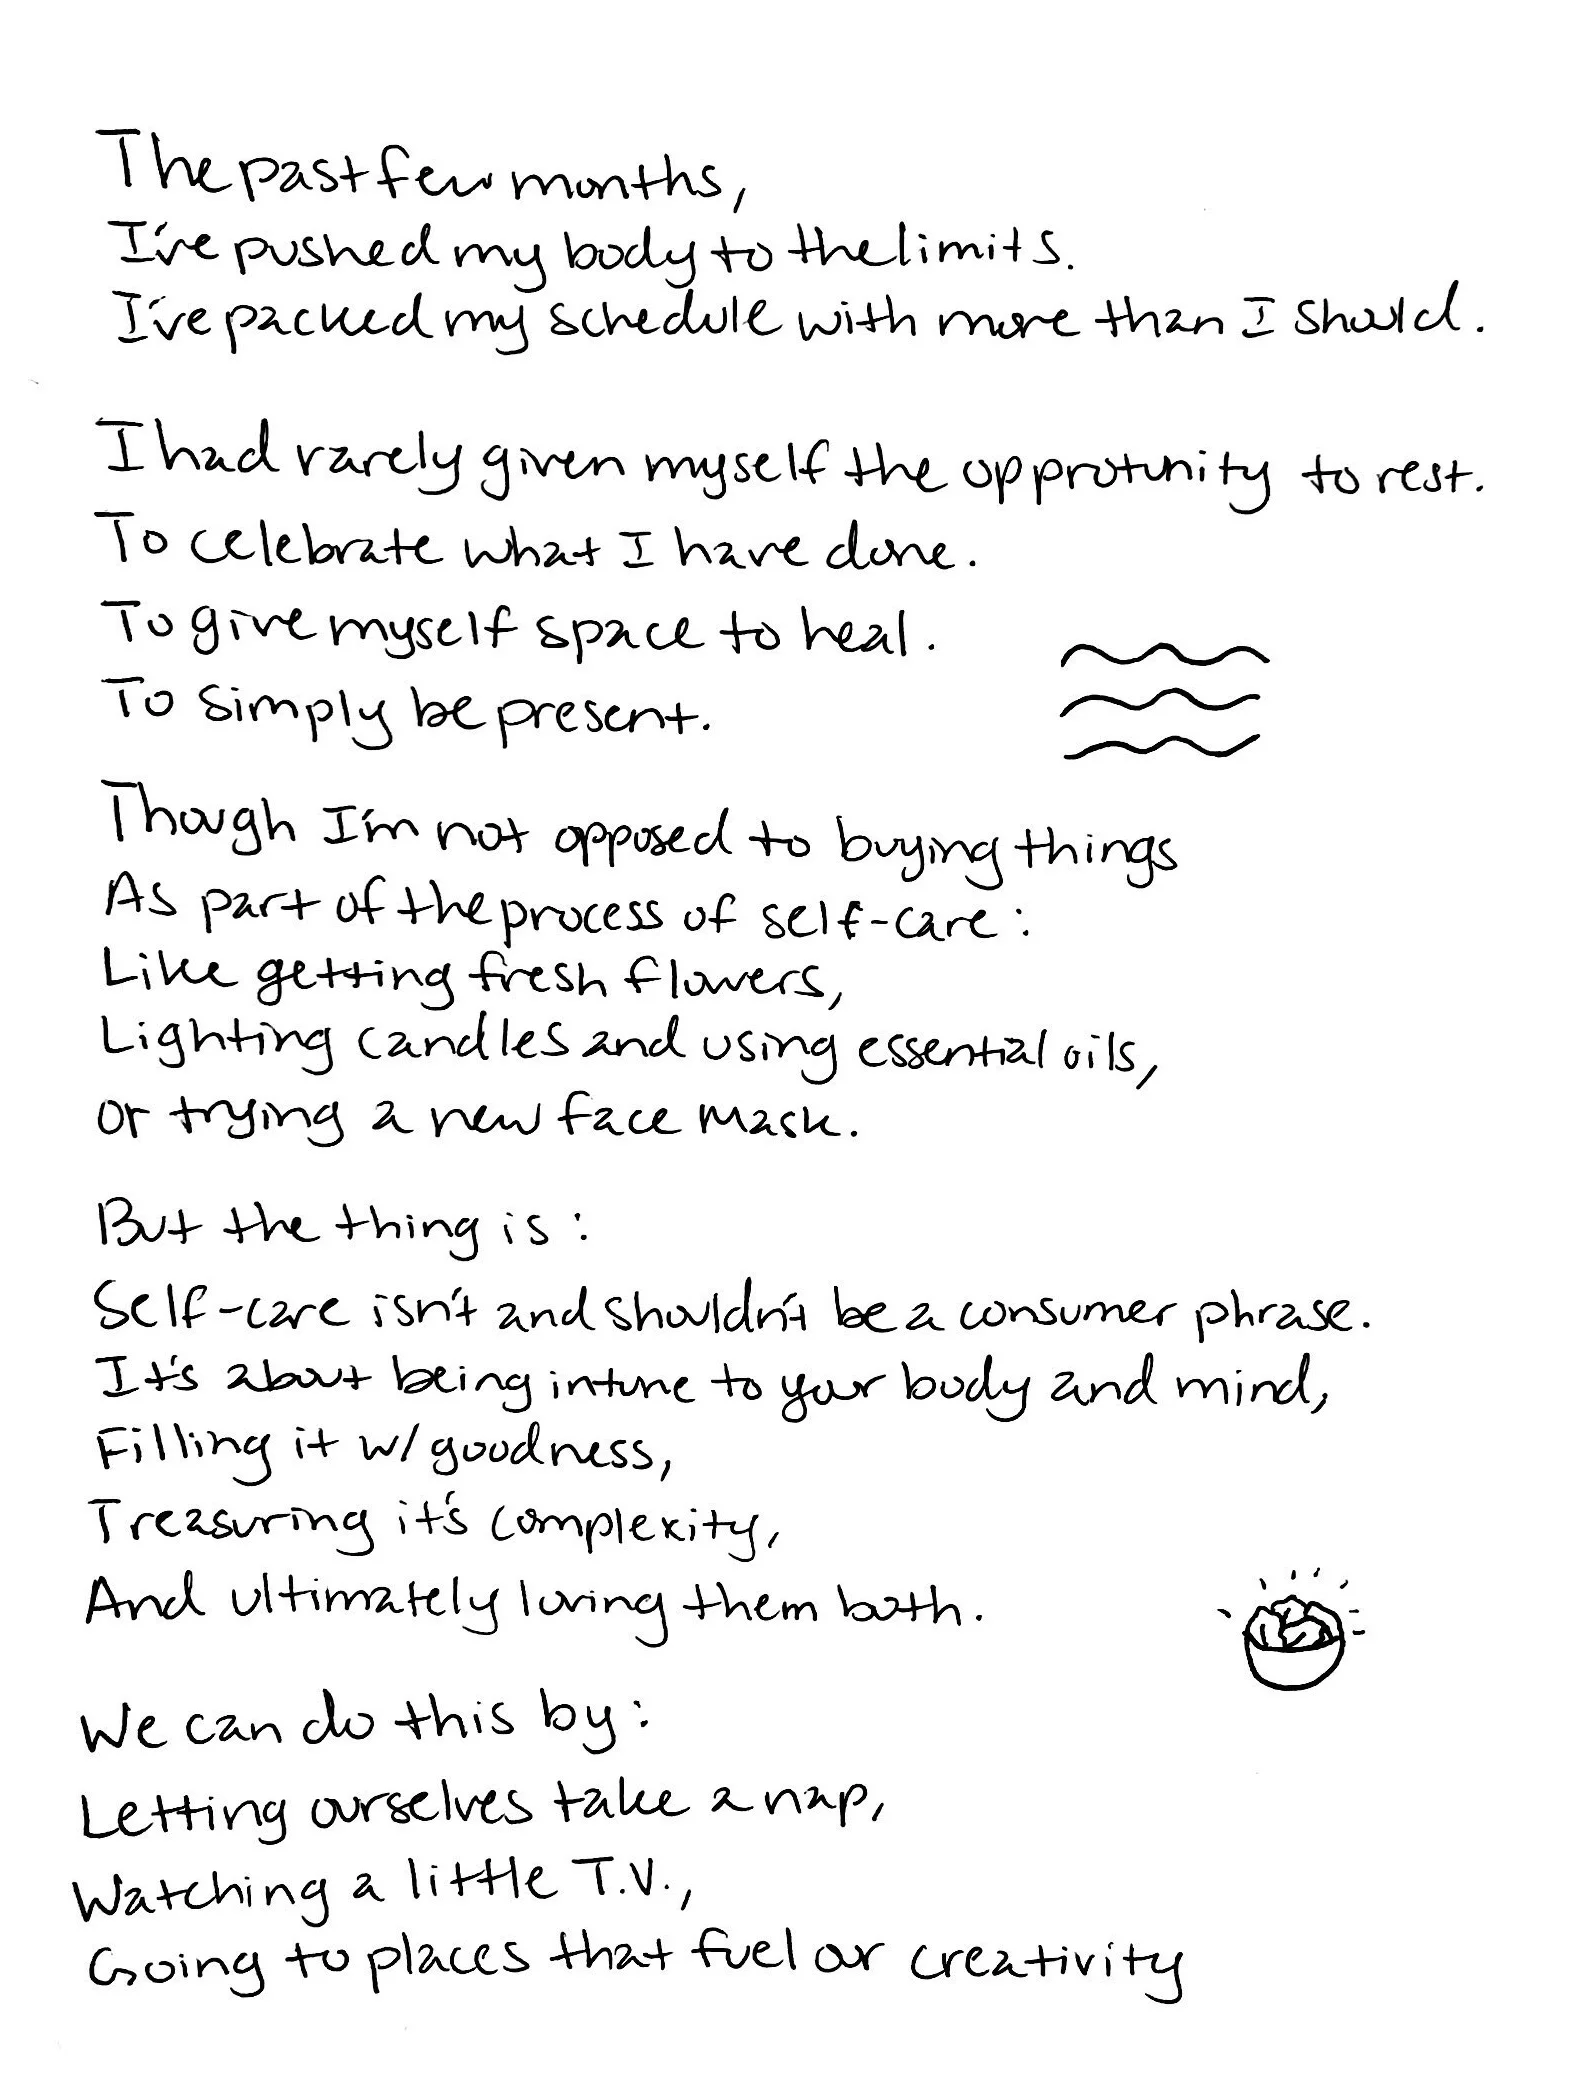 The past few months,
I've pushed my body to the limits.
I've packed my schedule with more than I should.
I had rarely given myself the opprotunity to rest.
To celebrate what I have done.
To give myself space to heal.
To simply be present.
Though I'm not opposed to buying things
As part of the process of self-care:
Like getting fresh flowers,
Lighting candles and using essential oils,
or trying a new face mask.
But the thing is:
Self-care isn't and shouldn't be a consumer phrase.
It's about being intune to your body and mind,
Filling it w/ goodness,
Treasuring it's complexity,
And ultimately loving them both.
We can do this by:
Letting ourselves take a nap,
Watching a little T.V.,
Going to places that fuel our creativity